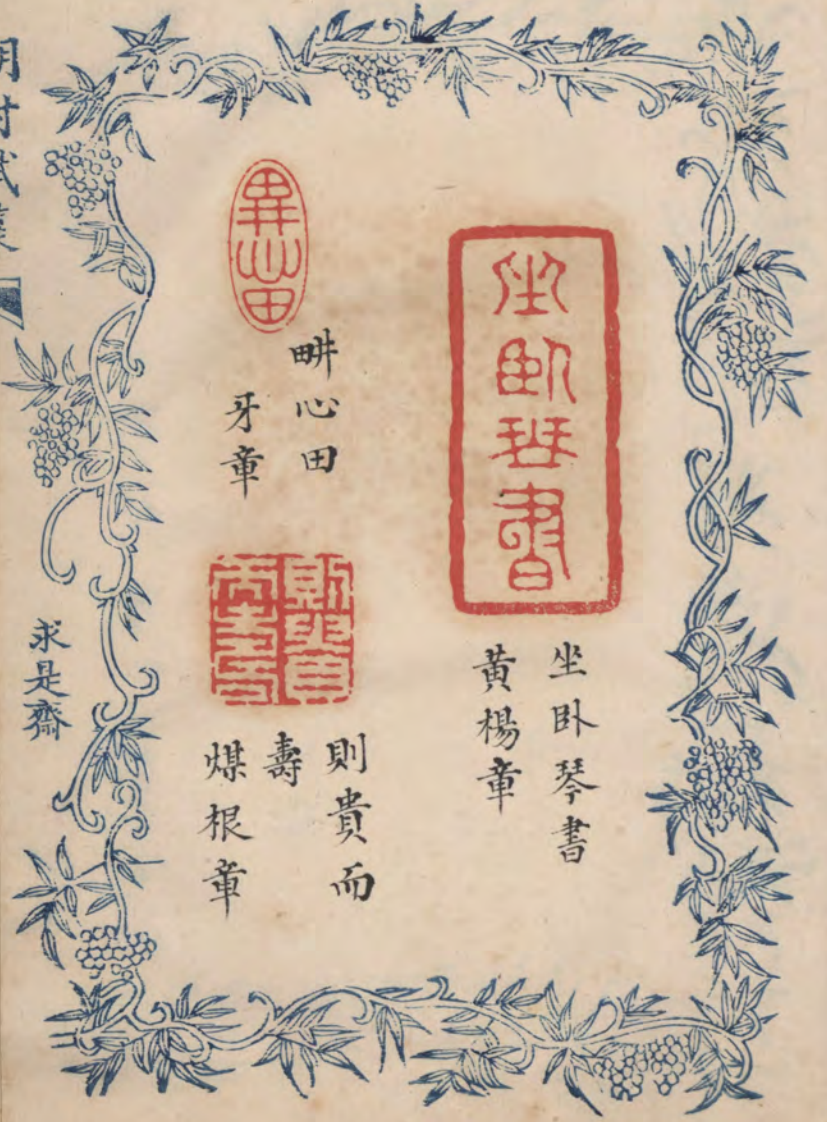 坐臥琴書
坐卧琴書
黄楊章
畊心田
畊心田
牙章
則貴
而壽
則貴而
壽
煤根章
求是齋